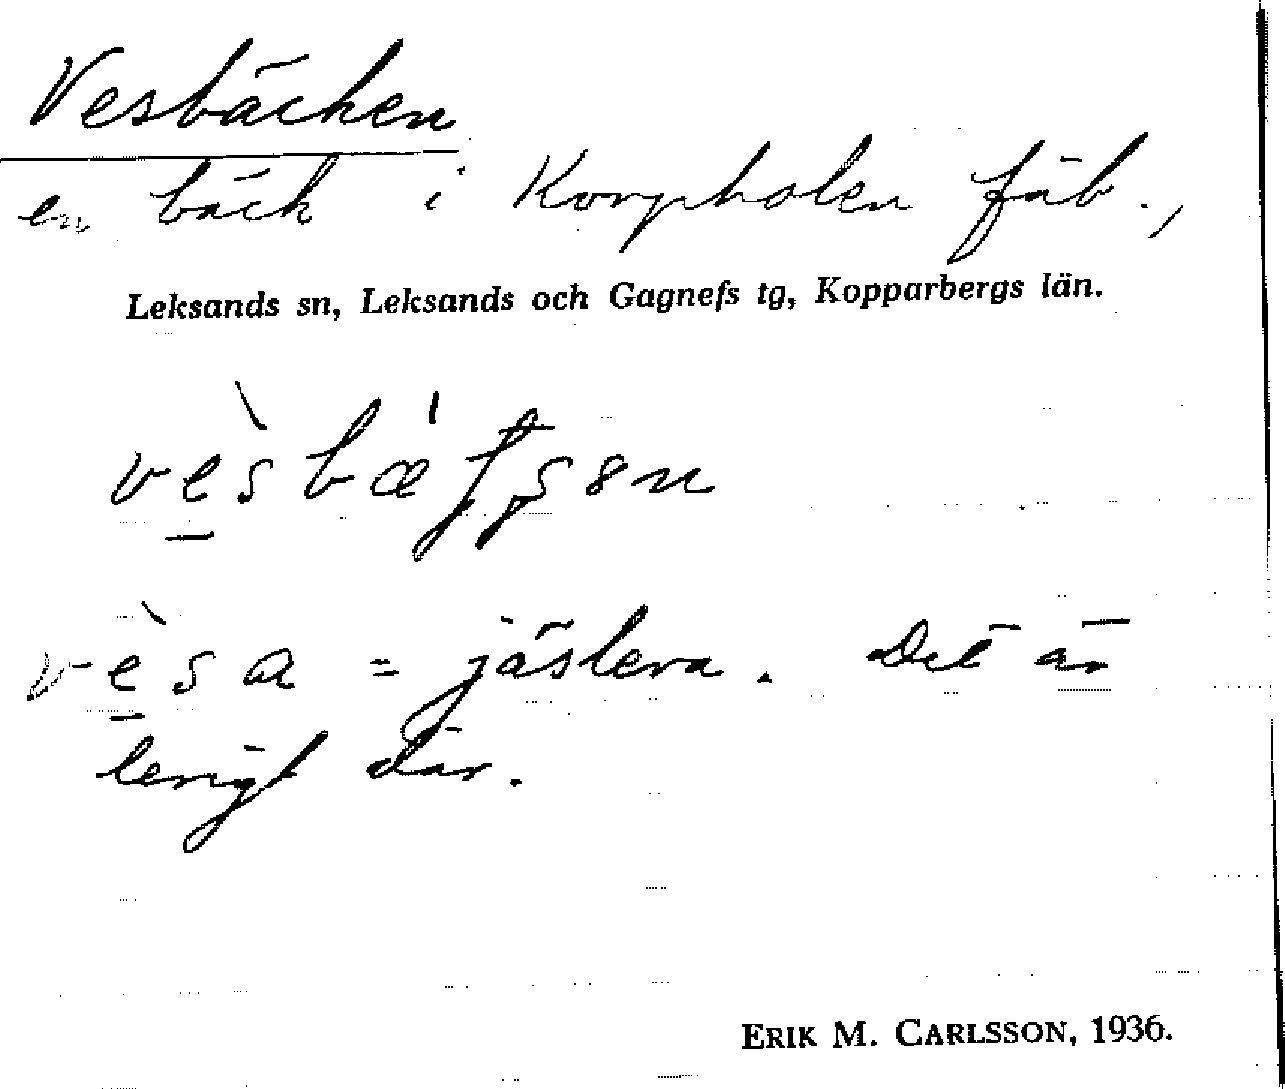 Vesbäcken
en bäck i Korpholen fäb.,
Leksands sn, Leksands och Gagnefs tg, Kopparbergs län.
= jäslera. Det är
lerigt där.
ERIK M. CARLSSON, 1936.